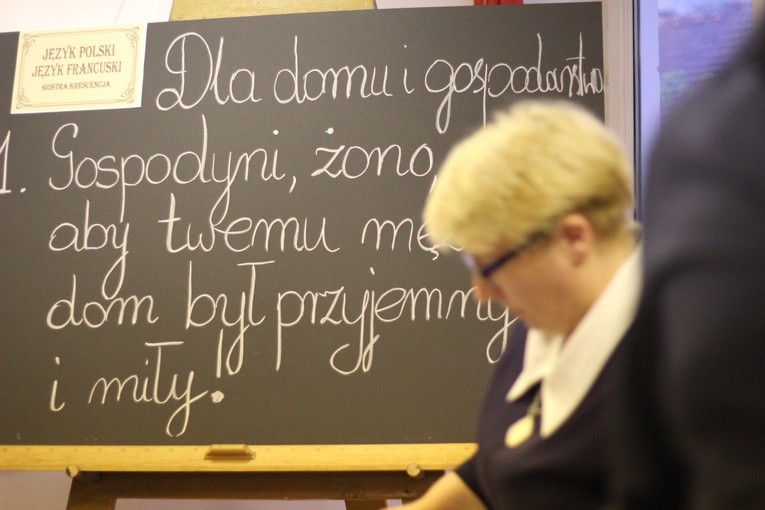 JĘZYK POLSKI
JĘZYK FRANCUSKI
SIOSTRA KRESCENCJA
Dla domu i gospodarstwa
1. Gospodyni, żono,
aby twemu
dom był przyjemny
i miły!